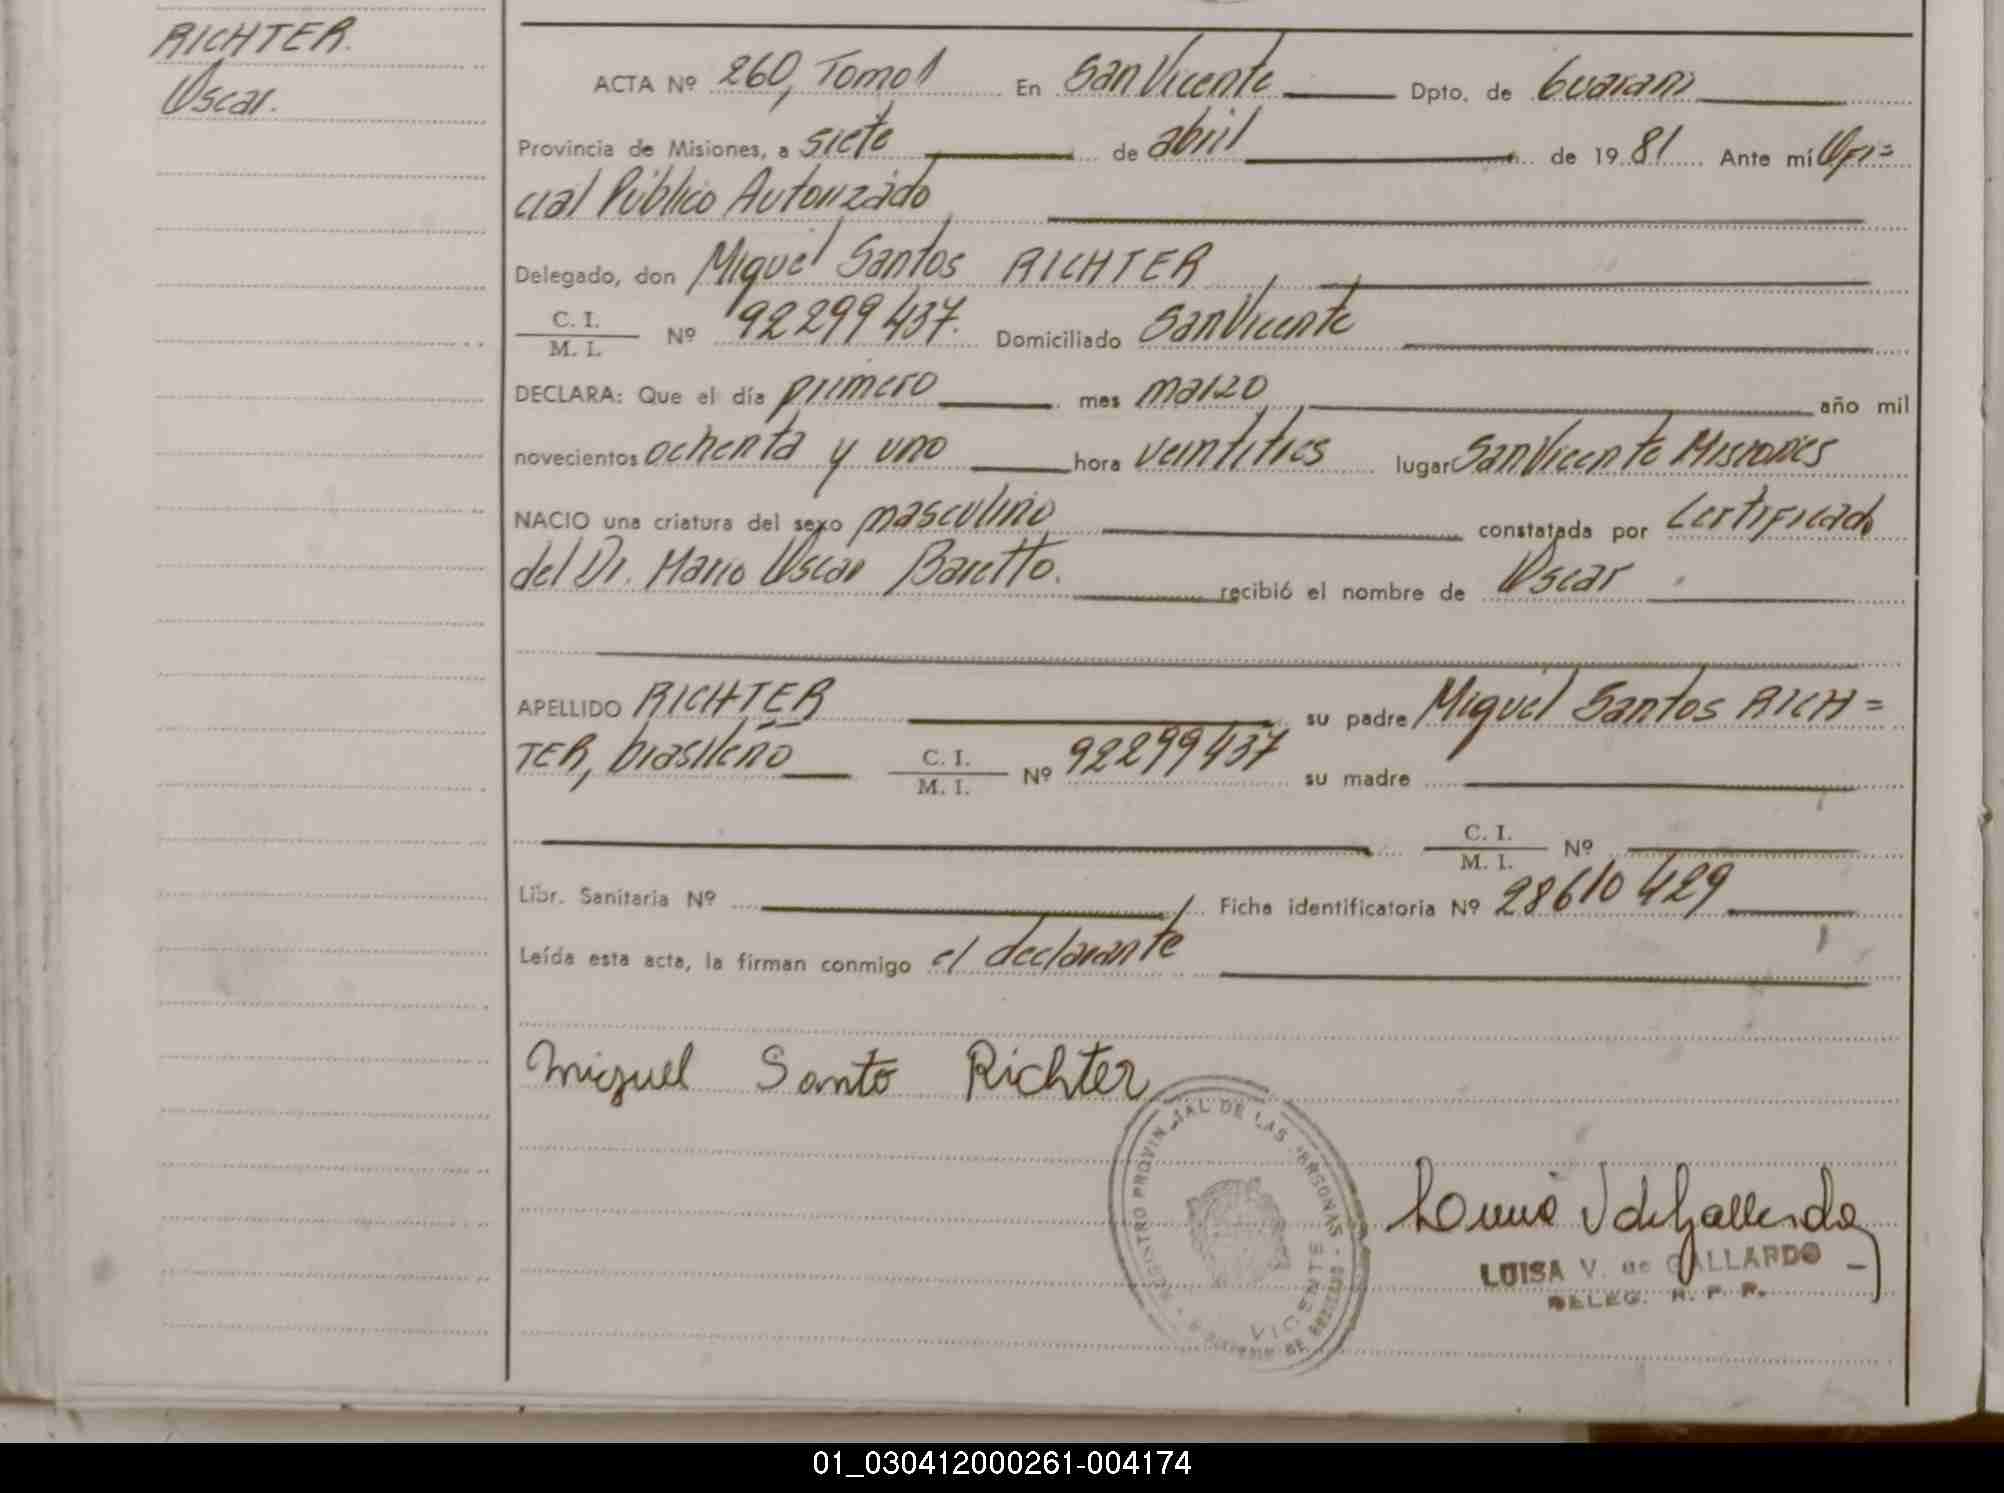 RICHTER.
Oscar.
ACTA Nº 260, Tomo 1 En San Vicente Dpto. de Guaraní
Provincia de Misiones, a siete de abril de 1981 Ante mí Ofi=
cial Público Autorizado
Delegado, don Miguel Santos RICHTER
C. I. / M. I. Nº 92299437. Domiciliado San Vicente
DECLARA: Que el día primero mes marzo año mil
novecientos ochenta y uno hora veintitres lugar San Vicente Misiones
NACIO una criatura del sexo masculino constatada por Certificado
del Dr. Mario Oscar Baretto. recibió el nombre de Oscar
APELLIDO RICHTER su padre Miguel Santos RICH=
TER, brasileño C. I. / M. I. Nº 92299437 su madre
C. I. / M. I. Nº
Libr. Sanitaria Nº Ficha identificatoria Nº 28610429
Leída esta acta, la firman conmigo el declarante
Miguel Santo Richter
REGISTRO PROVINCIAL DE LAS PERSONAS
VICENTE
LUISA V. de GALLARDO
DELEG. R. P. P.
01_030412000261-004174